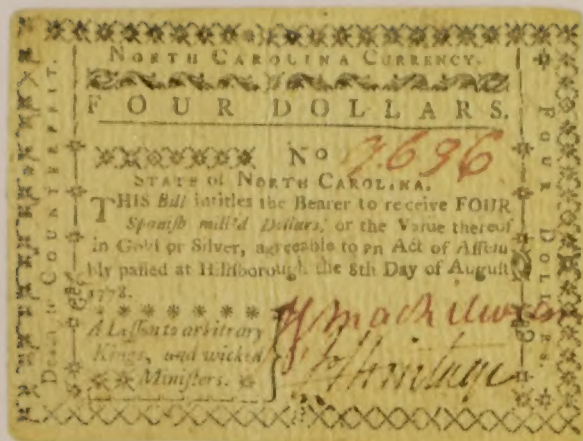 NORTH CAROLINA CURRENCY.
FOUR DOLLARS.
No 7696
STATE of NORTH CAROLINA.
THIS Bill intitles the Bearer to receive FOUR
Spanish mill'd Dollars, or the Value thereof
in Gold or Silver, agreeable to an Act of Assem
bly passed at Hillsborough the 8th Day of August
1778.
A Lesson to arbitrary
Kings, and wicked
Ministers.
Death to COUNTERFEIT.
FOUR DOLLARS.